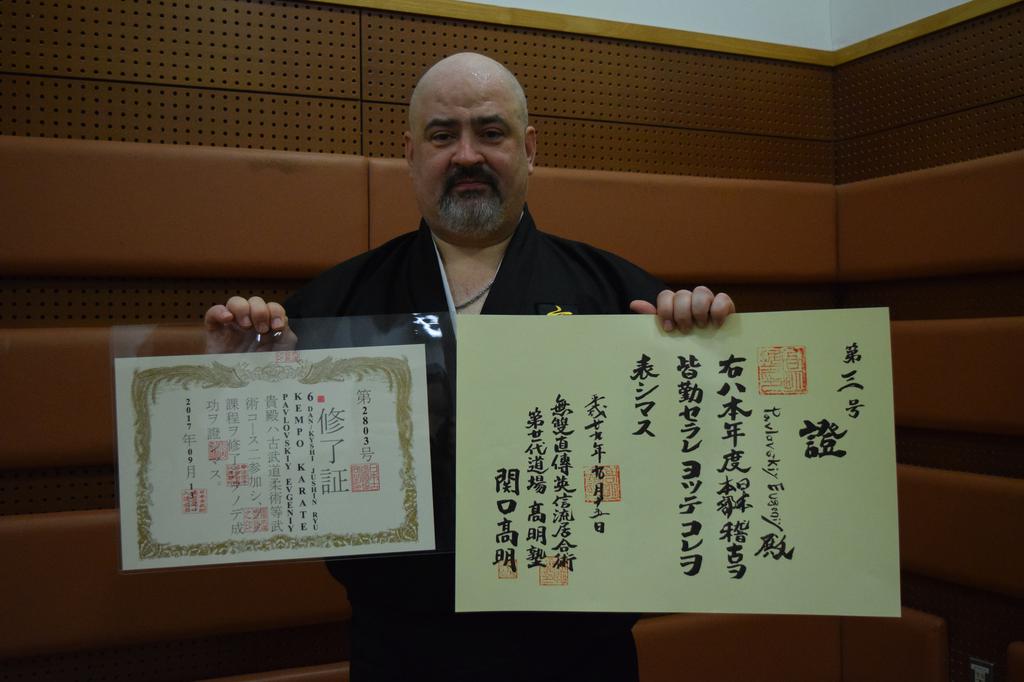 第2803号
修了証
6 DAN-KYSHI JUSHIN RYU
KEMPO KARATE
PAVLOVSKIY EVGENIY
貴殿ハ古武道柔術等武
術コース二参加シ、
課程ヲ修了
ノデ成
功ヲ證
ス。
2017年09月
第三号
證
Pavlovskiy Evgeniy殿
右ハ本年度日本本部稽古ヲ
皆勤セラレヨッテコレヲ
表シマス
平成廿九年九月十五日
無雙直傳英信流居合術
第廿一代道場髙明塾
関口髙明